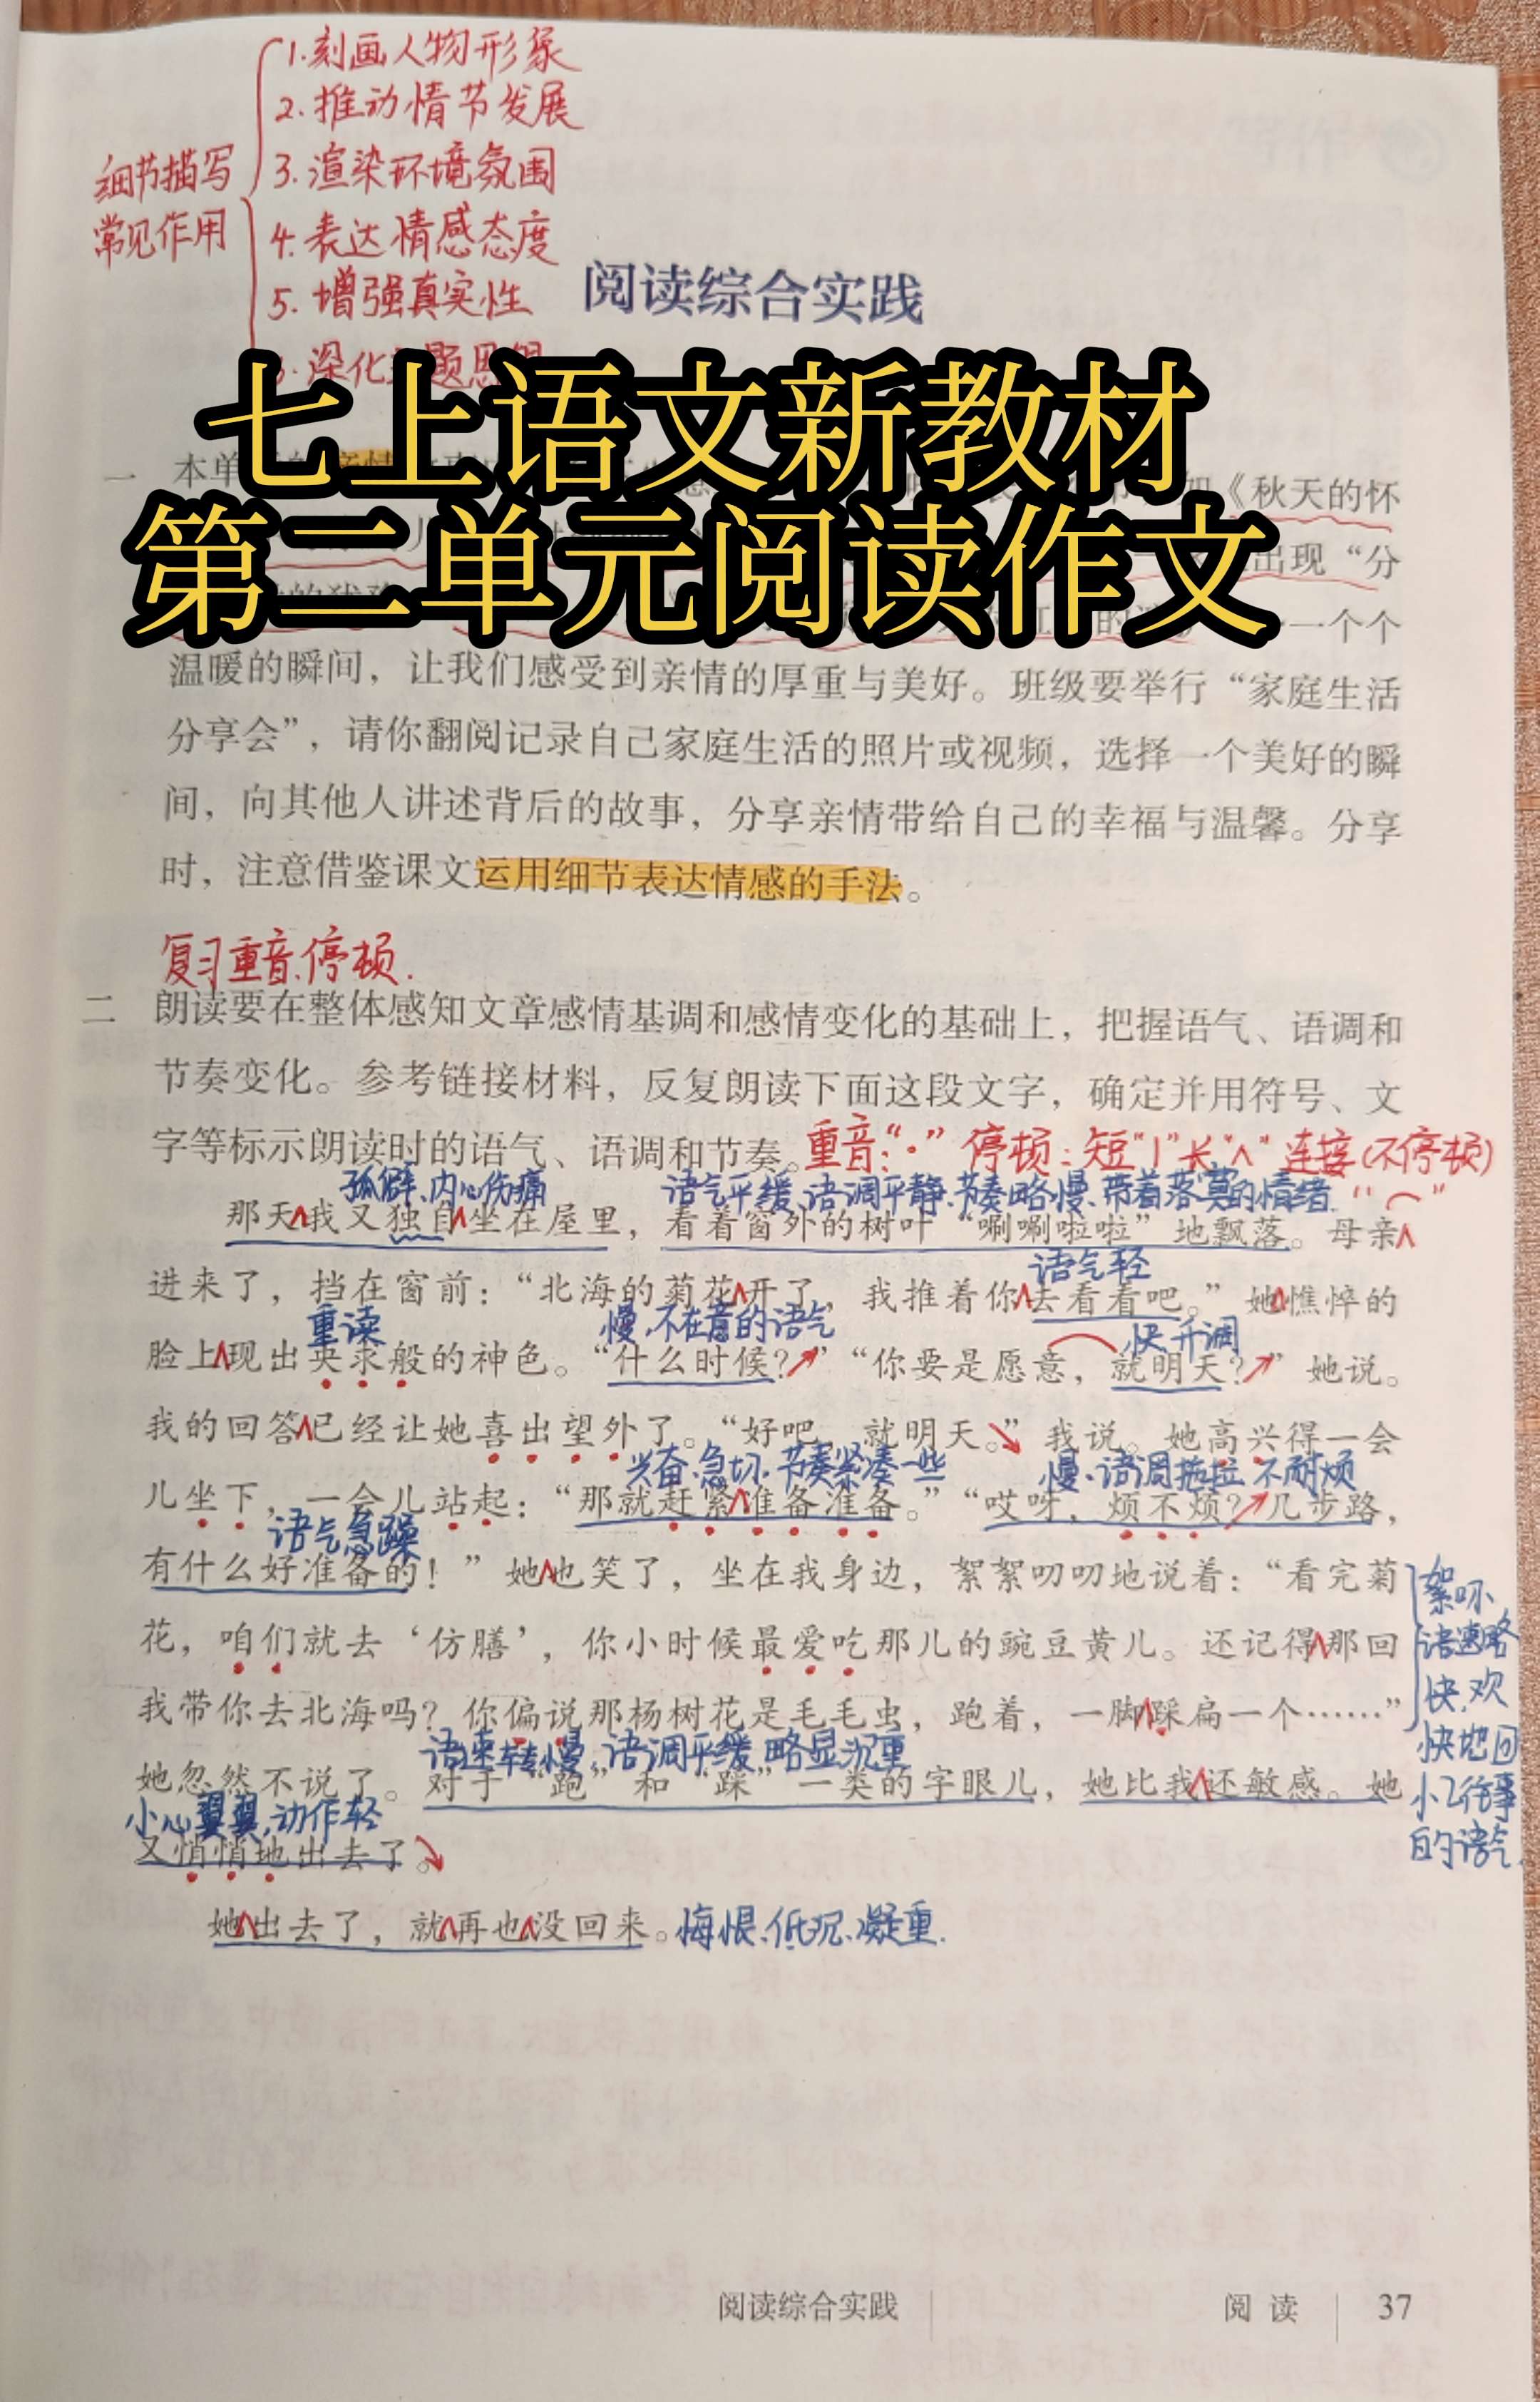 1.刻画人物形象
2.推动情节发展
细节描写
3.渲染环境氛围
常见作用
4.表达情感态度
5.增强真实性
阅读综合实践
七上语文新教材
第二单元阅读作文
一 本单
《秋天的怀
出现“分
一个个
温暖的瞬间，让我们感受到亲情的厚重与美好。班级要举行“家庭生活
分享会”，请你翻阅记录自己家庭生活的照片或视频，选择一个美好的瞬
间，向其他人讲述背后的故事，分享亲情带给自己的幸福与温馨。分享
时，注意借鉴课文运用细节表达情感的手法。
复习重音、停顿.
二 朗读要在整体感知文章感情基调和感情变化的基础上，把握语气、语调和
节奏变化。参考链接材料，反复朗读下面这段文字，确定并用符号、文
字等标示朗读时的语气、语调和节奏。重音：“·” 停顿：短“|”长“∧” 连接(不停顿)
孤僻、内心伤痛 语气平缓、语调平静、节奏略慢、带着落寞的情绪. “⌒”
那天∧我又独自∧坐在屋里，看着窗外的树叶“唰唰啦啦”地飘落。母亲∧
语气轻
进来了，挡在窗前：“北海的菊花∧开了，我推着你∧去看看吧。”她∧憔悴的
重读 慢、不在意的语气 快、升调
脸上∧现出央求般的神色。“什么时候？↗”“你要是愿意，就明天？↗”她说。
我的回答∧已经让她喜出望外了。“好吧，就明天。↘”我说。她高兴得一会
兴奋、急切、节奏紧凑一些 慢、语调拖拉、不耐烦
儿坐下，一会儿站起：“那就赶紧∧准备准备。”“哎呀，烦不烦？↗几步路，
语气急躁
有什么好准备的！”她∧也笑了，坐在我身边，絮絮叨叨地说着：“看完菊
花，咱们就去‘仿膳’，你小时候最爱吃那儿的豌豆黄儿。还记得∧那回
我带你去北海吗？你偏说那杨树花是毛毛虫，跑着，一脚∧踩扁一个……”
语速转慢，语调平缓、略显沉重
她忽然不说了。对于“跑”和“踩”一类的字眼儿，她比我∧还敏感。她
小心翼翼，动作轻
又悄悄地出去了。↘
她∧出去了，就∧再也∧没回来。悔恨、低沉、凝重.
语速略
快、欢
的语气.
阅读综合实践
阅读
37